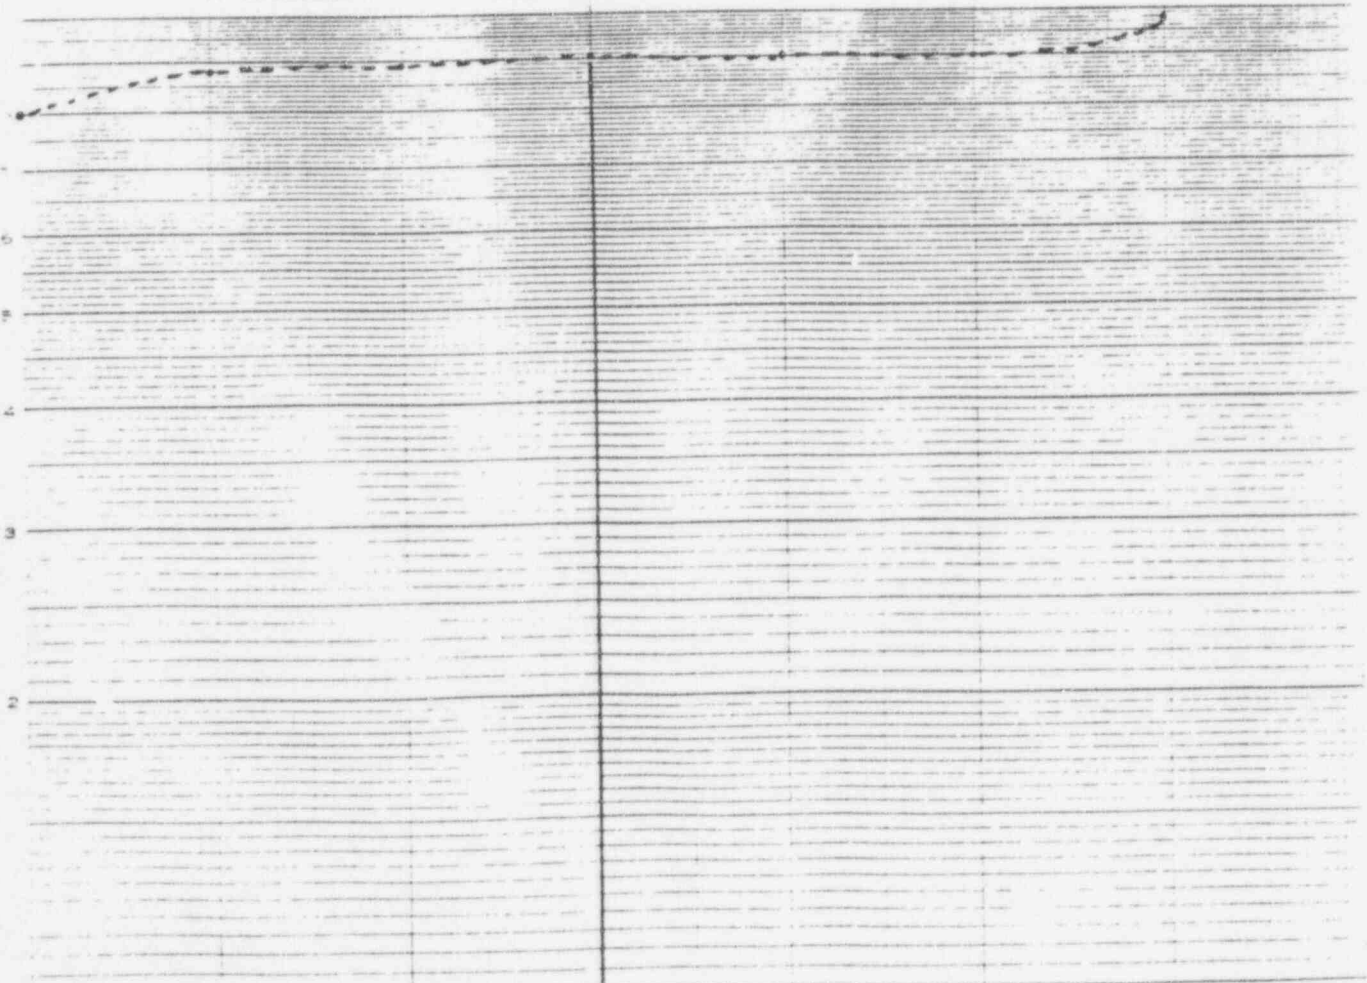 6
5
4
3
2